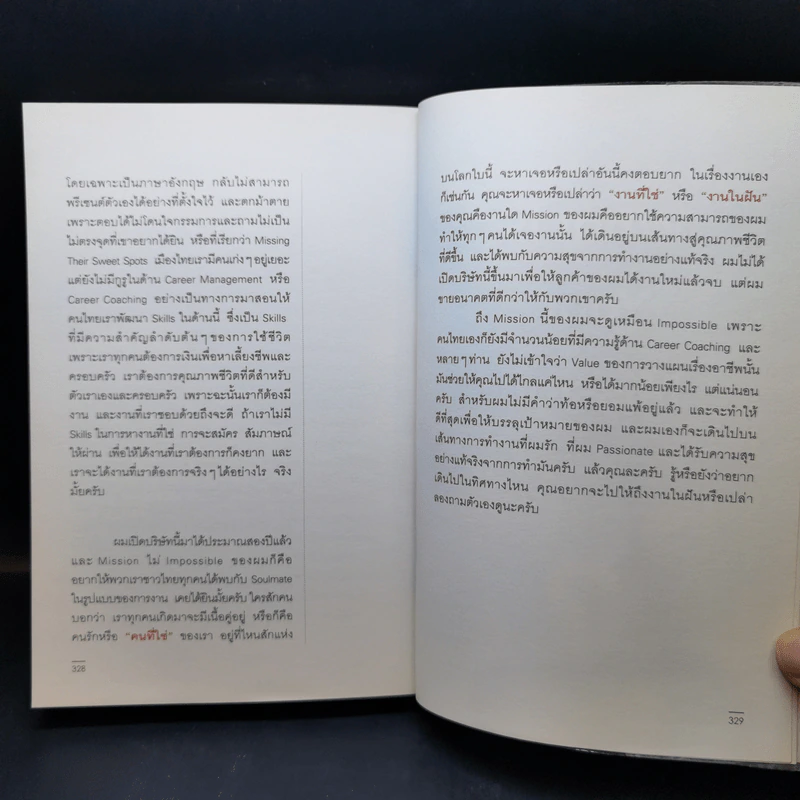 โดยเฉพาะเป็นภาษาอังกฤษ กลับไม่สามารถ
พรีเซนต์ตัวเองได้อย่างที่ตั้งใจไว้ และตกม้าตาย
เพราะตอบได้ไม่โดนใจกรรมการและถามไม่เป็น
ไม่ตรงจุดที่เขาอยากได้ยิน หรือที่เรียกว่า Missing
Their Sweet Spots เมืองไทยเรามีคนเก่งๆ อยู่เยอะ
แต่ยังไม่มีกูรูในด้าน Career Management หรือ
Career Coaching อย่างเป็นทางการมาสอนให้
คนไทยเราพัฒนา Skills ในด้านนี้ ซึ่งเป็น Skills
ที่มีความสำคัญลำดับต้นๆ ของการใช้ชีวิต
เพราะเราทุกคนต้องการเงินเพื่อหาเลี้ยงชีพและ
ครอบครัว เราต้องการคุณภาพชีวิตที่ดีสำหรับ
ตัวเราเองและครอบครัว เพราะฉะนั้นเราก็ต้องมี
งาน และงานที่เราชอบด้วยถึงจะดี ถ้าเราไม่มี
Skills ในการหางานที่ใช่ การจะสมัคร สัมภาษณ์
ให้ผ่าน เพื่อให้ได้งานที่เราต้องการก็คงยาก และ
เราจะได้งานที่เราต้องการจริงๆ ได้อย่างไร จริง
มั้ยครับ
ผมเปิดบริษัทนี้มาได้ประมาณสองปีแล้ว
และ Mission ไม่ Impossible ของผมก็คือ
อยากให้พวกเราชาวไทยทุกคนได้พบกับ Soulmate
ในรูปแบบของการงาน เคยได้ยินมั้ยครับ ใครสักคน
บอกว่า เราทุกคนเกิดมาจะมีเนื้อคู่อยู่ หรือก็คือ
คนรักหรือ “คนที่ใช่” ของเรา อยู่ที่ไหนสักแห่ง
328
บนโลกใบนี้ จะหาเจอหรือเปล่าอันนี้คงตอบยาก ในเรื่องงานเอง
ก็เช่นกัน คุณจะหาเจอหรือเปล่าว่า “งานที่ใช่” หรือ “งานในฝัน”
ของคุณคืองานใด Mission ของผมคืออยากใช้ความสามารถของผม
ทำให้ทุกๆ คนได้เจองานนั้น ได้เดินอยู่บนเส้นทางสู่คุณภาพชีวิต
ที่ดีขึ้น และได้พบกับความสุขจากการทำงานอย่างแท้จริง ผมไม่ได้
เปิดบริษัทนี้ขึ้นมาเพื่อให้ลูกค้าของผมได้งานใหม่แล้วจบ แต่ผม
ขายอนาคตที่ดีกว่าให้กับพวกเขาครับ
ถึง Mission นี้ของผมจะดูเหมือน Impossible เพราะ
คนไทยเองก็ยังมีจำนวนน้อยที่มีความรู้ด้าน Career Coaching และ
หลายๆ ท่าน ยังไม่เข้าใจว่า Value ของการวางแผนเรื่องอาชีพนั้น
มันช่วยให้คุณไปได้ไกลแค่ไหน หรือได้มากน้อยเพียงไร แต่แน่นอน
ครับ สำหรับผมไม่มีคำว่าท้อหรือยอมแพ้อยู่แล้ว และจะทำให้
ดีที่สุดเพื่อให้บรรลุเป้าหมายของผม และผมเองก็จะเดินไปบน
เส้นทางการทำงานที่ผมรัก ที่ผม Passionate และได้รับความสุข
อย่างแท้จริงจากการทำมันครับ แล้วคุณละครับ รู้หรือยังว่าอยาก
เดินไปในทิศทางไหน คุณอยากจะไปให้ถึงงานในฝันหรือเปล่า
ลองถามตัวเองดูนะครับ
329